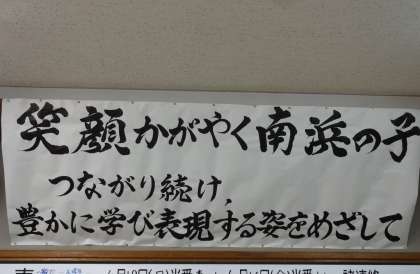 笑顔かがやく南浜の子
つながり続け、
豊かに学び表現する姿をめざして